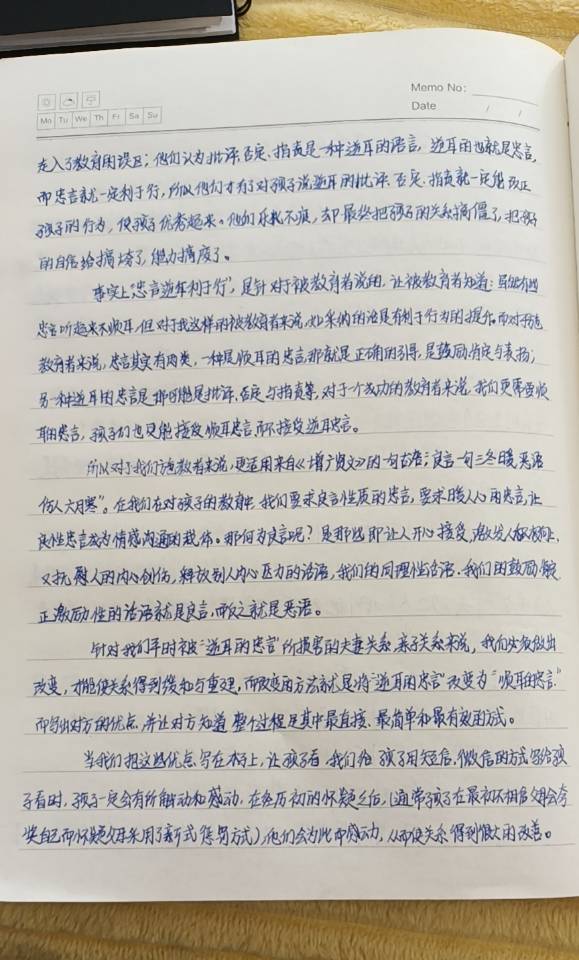 Memo No:
Date / /
Mo Tu We Th Fr Sa Su
走入了教育的误区；他们认为批评、否定、指责是一种逆耳的语言，逆耳的也就是忠言，
而忠言就一定利于行，所以他们才有了对孩子说逆耳的批评、否定、指责就一定能改正
孩子的行为，使孩子优秀起来。他们乐此不疲，却最终把孩子的关系搞僵了，把孩子
的自信给搞垮了，能力搞废了。
事实上"忠言逆耳利于行"，是针对于被教育者说的，让被教育者知道：虽然有些
忠言听起来不顺耳，但对于我这样的被教育者来说，如采纳的话是有利于行为的提升。而对于施
教育者来说，忠言其实有两类，一种是顺耳的忠言，那就是正确的引导，是鼓励、肯定与表扬；
另一种逆耳的忠言是那可能是批评、否定与指责等，对于个成功的教育者来说，我们更需要顺
耳的忠言，孩子们也只能接受顺耳忠言而不接受逆耳忠言。
所以对于我们施教者来说，更适用来自《增广贤文》的一句古语：良言一句三冬暖，恶语
伤人六月寒"。在我们在对孩子的教育中，我们要求良言性质的忠言，要求暖人心的忠言，让
良性忠言成为情感沟通的载体。那何为良言呢？是那些即让人开心接受，激发人积极向上，
又抚慰人的内心创伤，释放别人内心压力的话语，我们的同理性话语、我们的鼓励、赖
正激励性的话语就是良言，而反之就是恶语。
针对我们平时被"逆耳的忠言"所损害的夫妻关系、亲子关系来说，我们必须做出
改变，才能使关系得到缓和与重建，而改变的方法就是将"逆耳的忠言"改变为"顺耳的忠言"
而写出对方的优点，并让对方知道整个过程是其中最直接、最简单和最有效的方式。
当我们把这些优点写在本子上，让孩子看，我们给孩子用短信、微信的方式写给孩
子看时，孩子一定会有所触动和感动，在经历初的怀疑之后，（通常孩子在最初不相信父母会夸
奖自己而怀疑父母采用了新式惩罚方式），他们会为此而感动，从而使关系得到很大的改善。